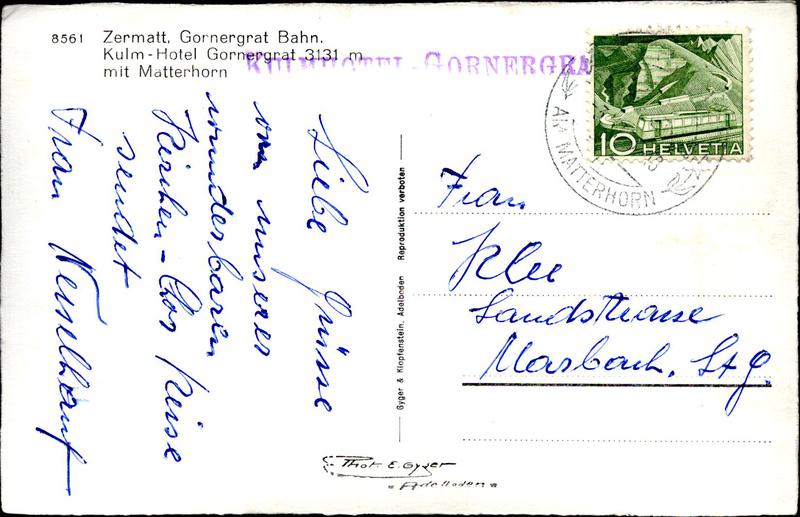 8561 Zermatt, Gornergrat Bahn.
Kulm-Hotel Gornergrat 3131 m
mit Matterhorn
KULMHOTEL-GORNERGRA
10 HELVETIA
AM MATTERHORN
Liebe Grüsse
von unserer
wunderbaren
Kirchen-Chor Reise
sendet
Frau
Gyger & Klopfenstein, Adelboden Reproduktion verboten
Frau
Klee
Landstrasse
Marbach, St. G.
Phot. E. Gyger
Adelboden